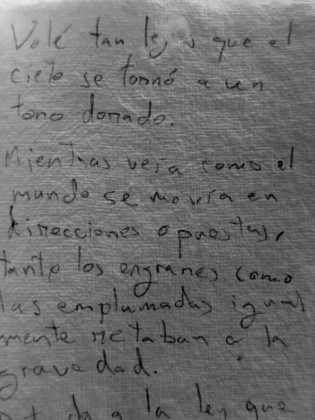 Volé tan lejos que el
cielo se tornó a un
tono dorado.
Mientras veía como el
mundo se movía en
direcciones opuestas,
tanto los engranes como
las emplumadas igual
mente retaban a la
gravedad.
a la ley que